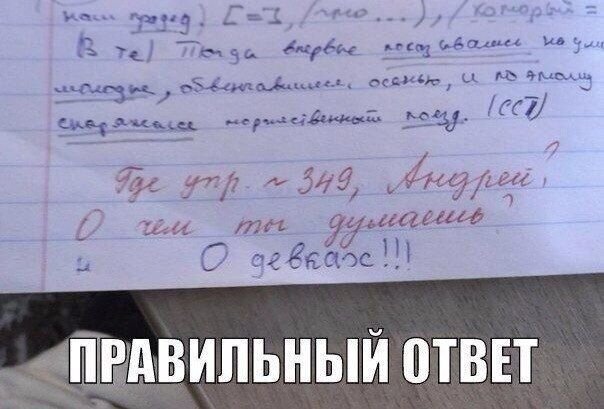 наш прадед) [=], (что...), (который =
(В те) Тогда впервые показывались на ули
молодые, обвенчавшиеся осенью, и по этому
снаряжался торжественный поезд. (ССП)
Где упр. ~ 349, Андрей?
О чем ты думаешь?
О девках!!!
ПРАВИЛЬНЫЙ ОТВЕТ